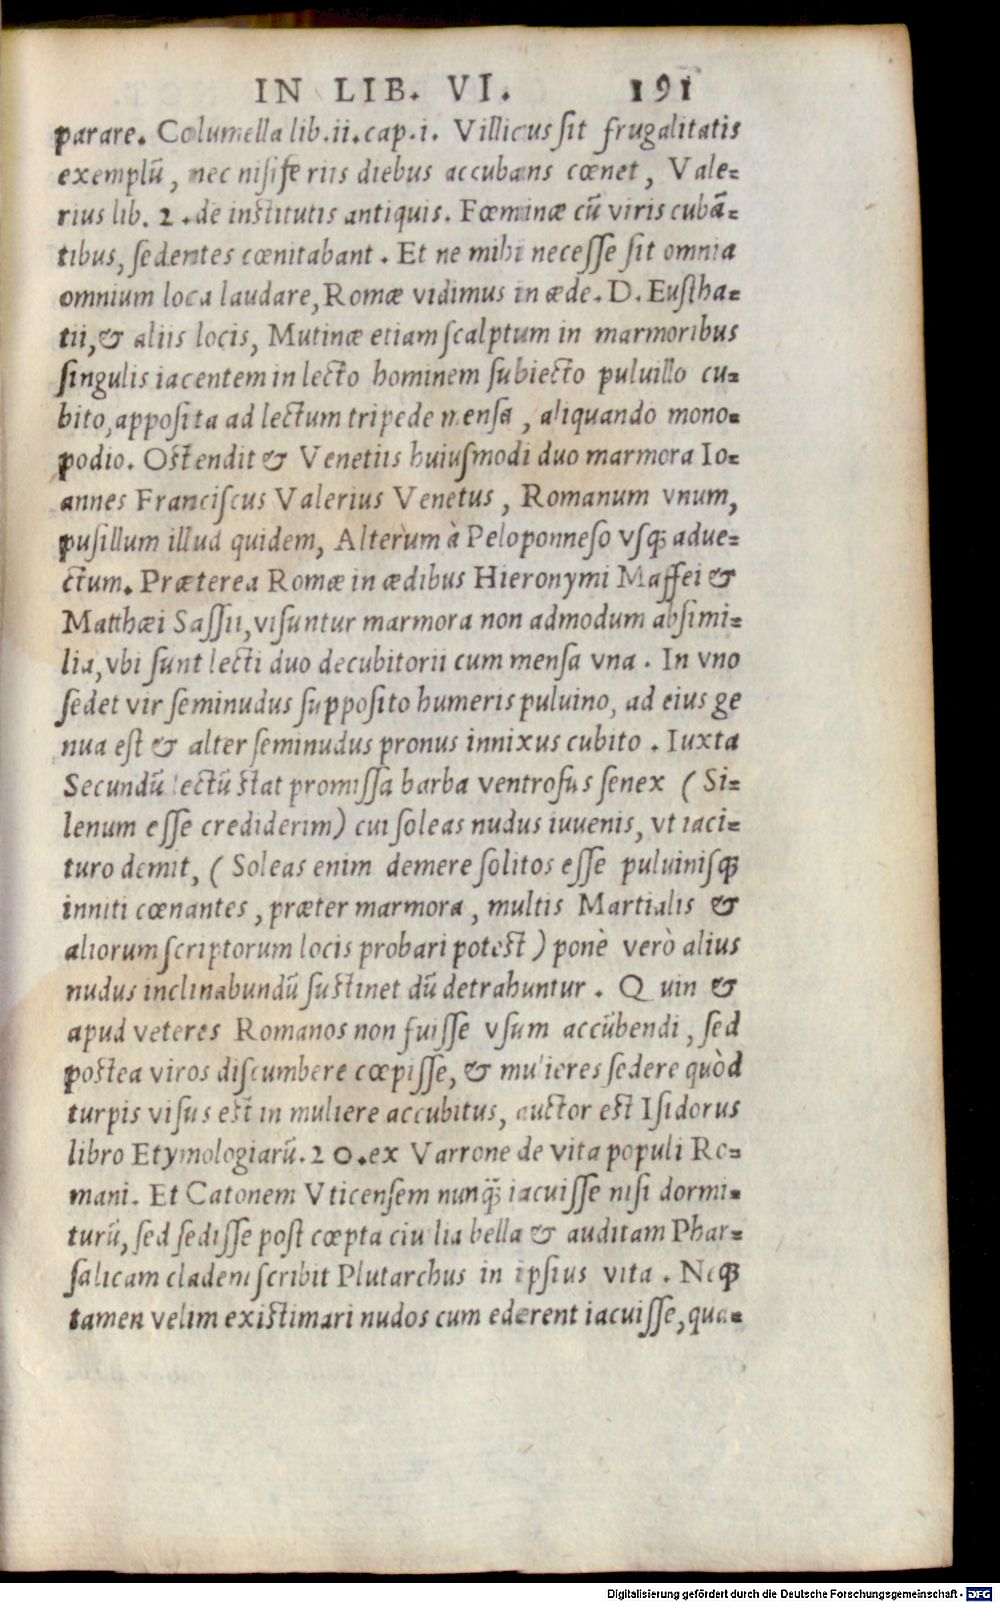 IN LIB. VI. 191
parare. Columella lib.ii.cap.i. Villicus sit frugalitatis
exemplū, nec nisi feriis diebus accubans cœnet, Vale=
rius lib. 2. de institutis antiquis. Fœminæ cū viris cubā=
tibus, sedentes cœnitabant. Et ne mihi necesse sit omnia
omnium loca laudare, Romæ vidimus in æde. D. Eustha=
tii, & aliis locis, Mutinæ etiam scalptum in marmoribus
singulis iacentem in lecto hominem subiecto puluillo cu=
bito, apposita ad lectum tripede mensa, aliquando mono=
podio. Ostendit & Venetiis huiusmodi duo marmora Io=
annes Franciscus Valerius Venetus, Romanum vnum,
pusillum illud quidem, Alterùm à Peloponneso vsq; adue=
ctum. Præterea Romæ in ædibus Hieronymi Maffei &
Matthæi Sassii, visuntur marmora non admodum absimi=
lia, vbi sunt lecti duo decubitorii cum mensa vna. In vno
sedet vir seminudus supposito humeris puluino, ad eius ge
nua est & alter seminudus pronus innixus cubito. Iuxta
Secundū lectū stat promissa barba ventrosus senex (Si=
lenum esse crediderim) cui soleas nudus iuuenis, vt iaci=
turo demit, (Soleas enim demere solitos esse puluinisq;
inniti cœnantes, præter marmora, multis Martialis &
aliorum scriptorum locis probari potest) ponè verò alius
nudus inclinabundū sustinet dū detrahuntur. Quin &
apud veteres Romanos non fuisse vsum accūbendi, sed
postea viros discumbere cœpisse, & mulieres sedere quòd
turpis visus est in muliere accubitus, auctor est Isidorus
libro Etymologiarū. 20. ex Varrone de vita populi Ro=
mani. Et Catonem Vticensem nunq̄; iacuisse nisi dormi=
turū, sed sedisse post cœpta ciuilia bella & auditam Phar=
salicam cladem scribit Plutarchus in ipsius vita. Neq;
tamen velim existimari nudos cum ederent iacuisse, qua=
Digitalisierung gefördert durch die Deutsche Forschungsgemeinschaft - DFG